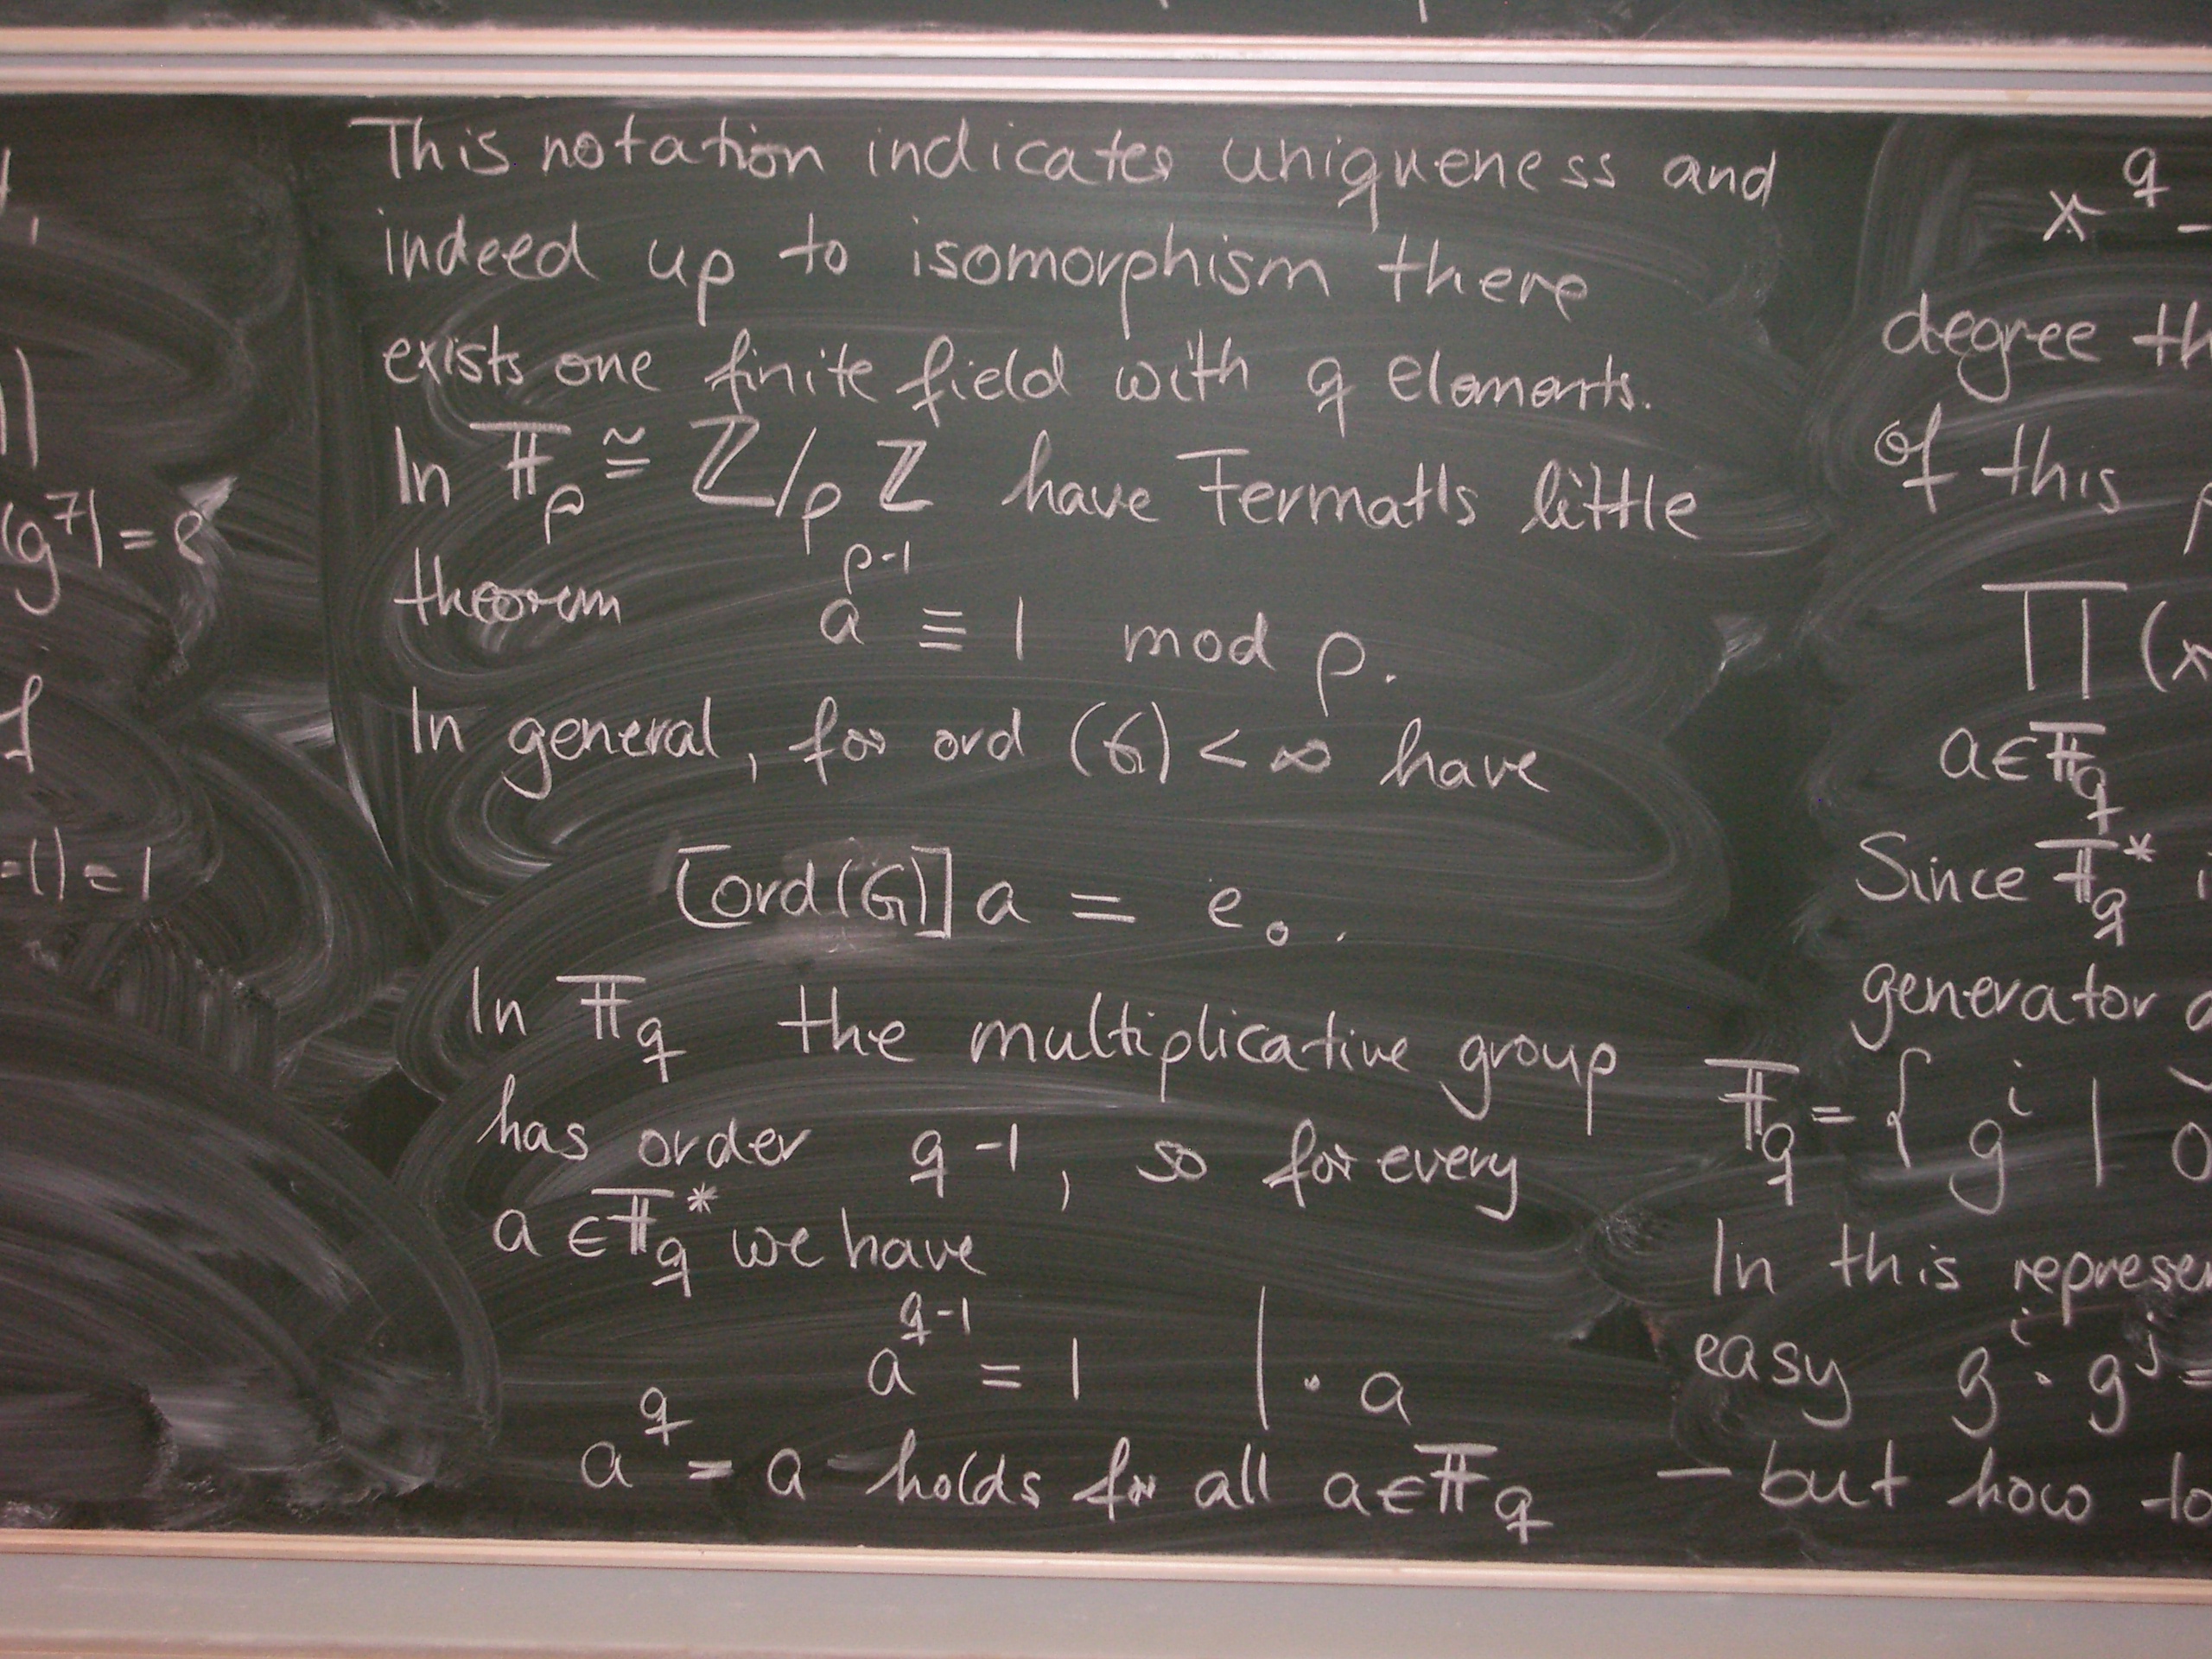 This notation indicates uniqueness and
indeed up to isomorphism there
exists one finite field with q elements.
In 𝔽_p ≅ ℤ/pℤ have Fermat's little
theorem a^{p-1} ≡ 1 mod p.
In general, for ord (G) < ∞ have
[ord(G)] a = e_∘.
In 𝔽_q the multiplicative group
has order q-1, so for every
a ∈ 𝔽_q^* we have
a^{q-1} = 1 | · a
a^q = a holds for all a ∈ 𝔽_q
(g^7) =
-1) = 1
x^q -
degree th
of this p
∏ (x
a ∈ 𝔽_q
Since 𝔽_q^* i
generator
𝔽_q = { g^i | 0
In this represen
easy g^i · g^j =
- but how to